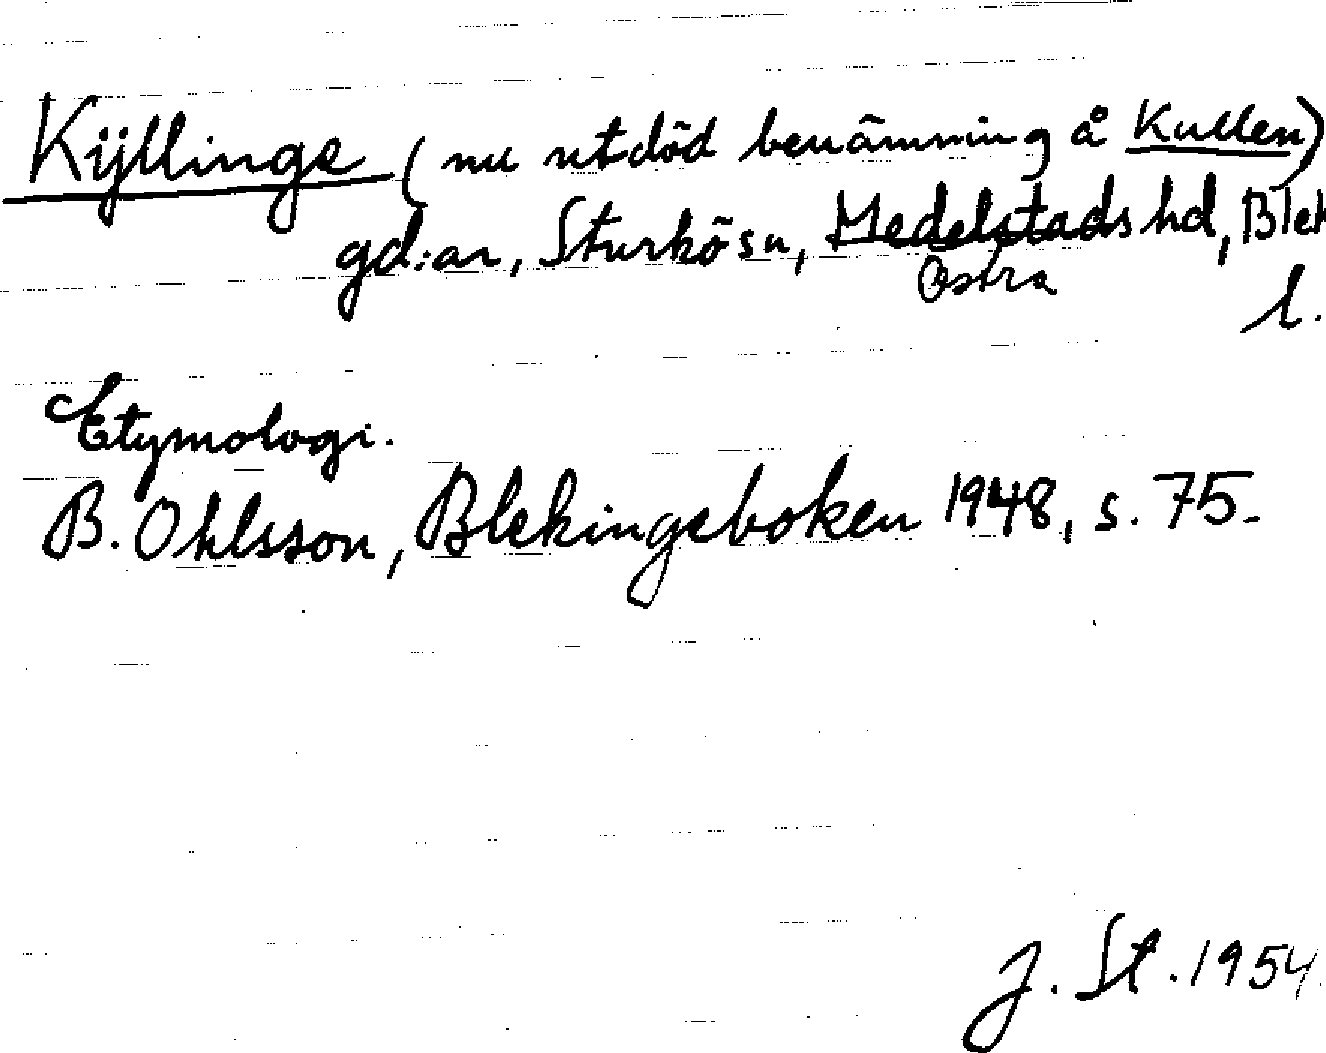 Kÿllinge (nu utdöd benämning å Kullen)
gd:ar, Sturkö sn, Medelstads hd, Blek
Östra
l.
Etymologi.
B. Ohlsson, Blekingeboken 1948, s. 75.
J. St. 1954.